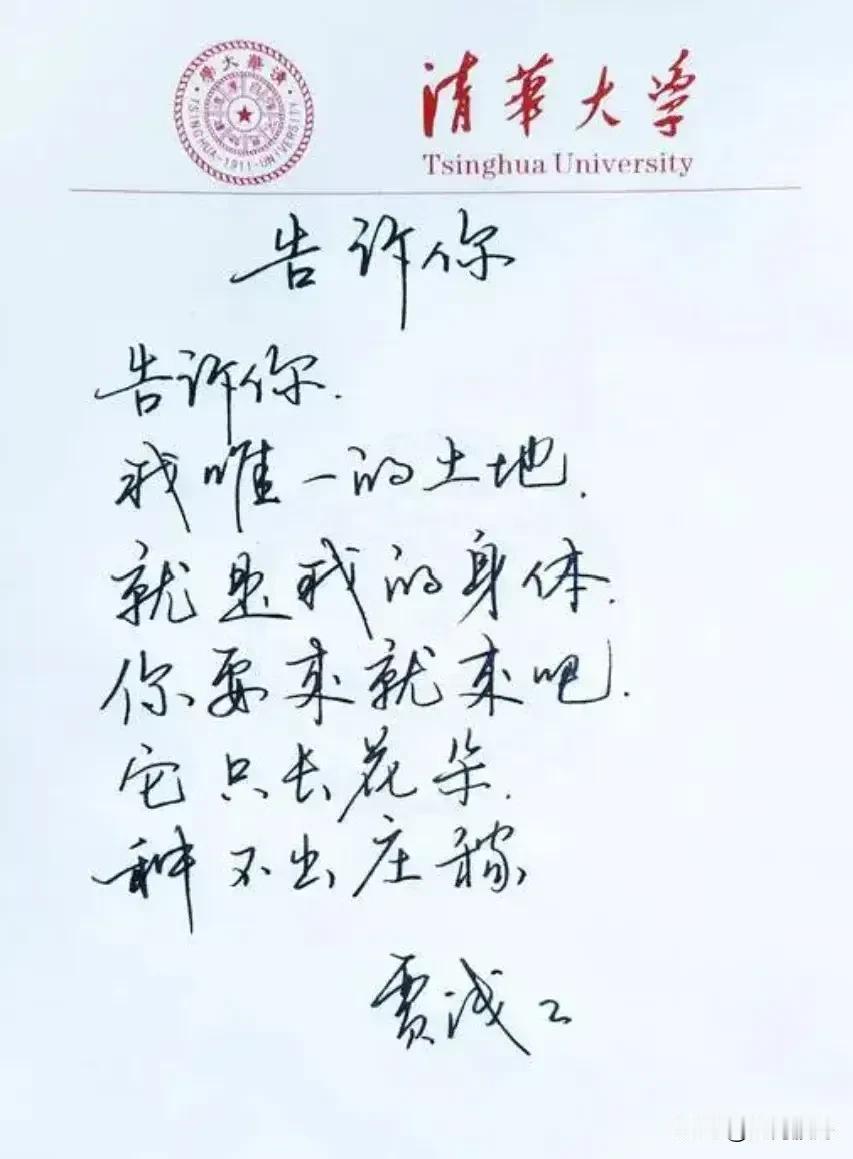 清華大學
TSINGHUA-1911-UNIVERSITY
清华大学
Tsinghua University
告诉你
告诉你.
我唯一的土地.
就是我的身体.
你要来就来吧.
它只长花朵.
种不出庄稼
贾浅二